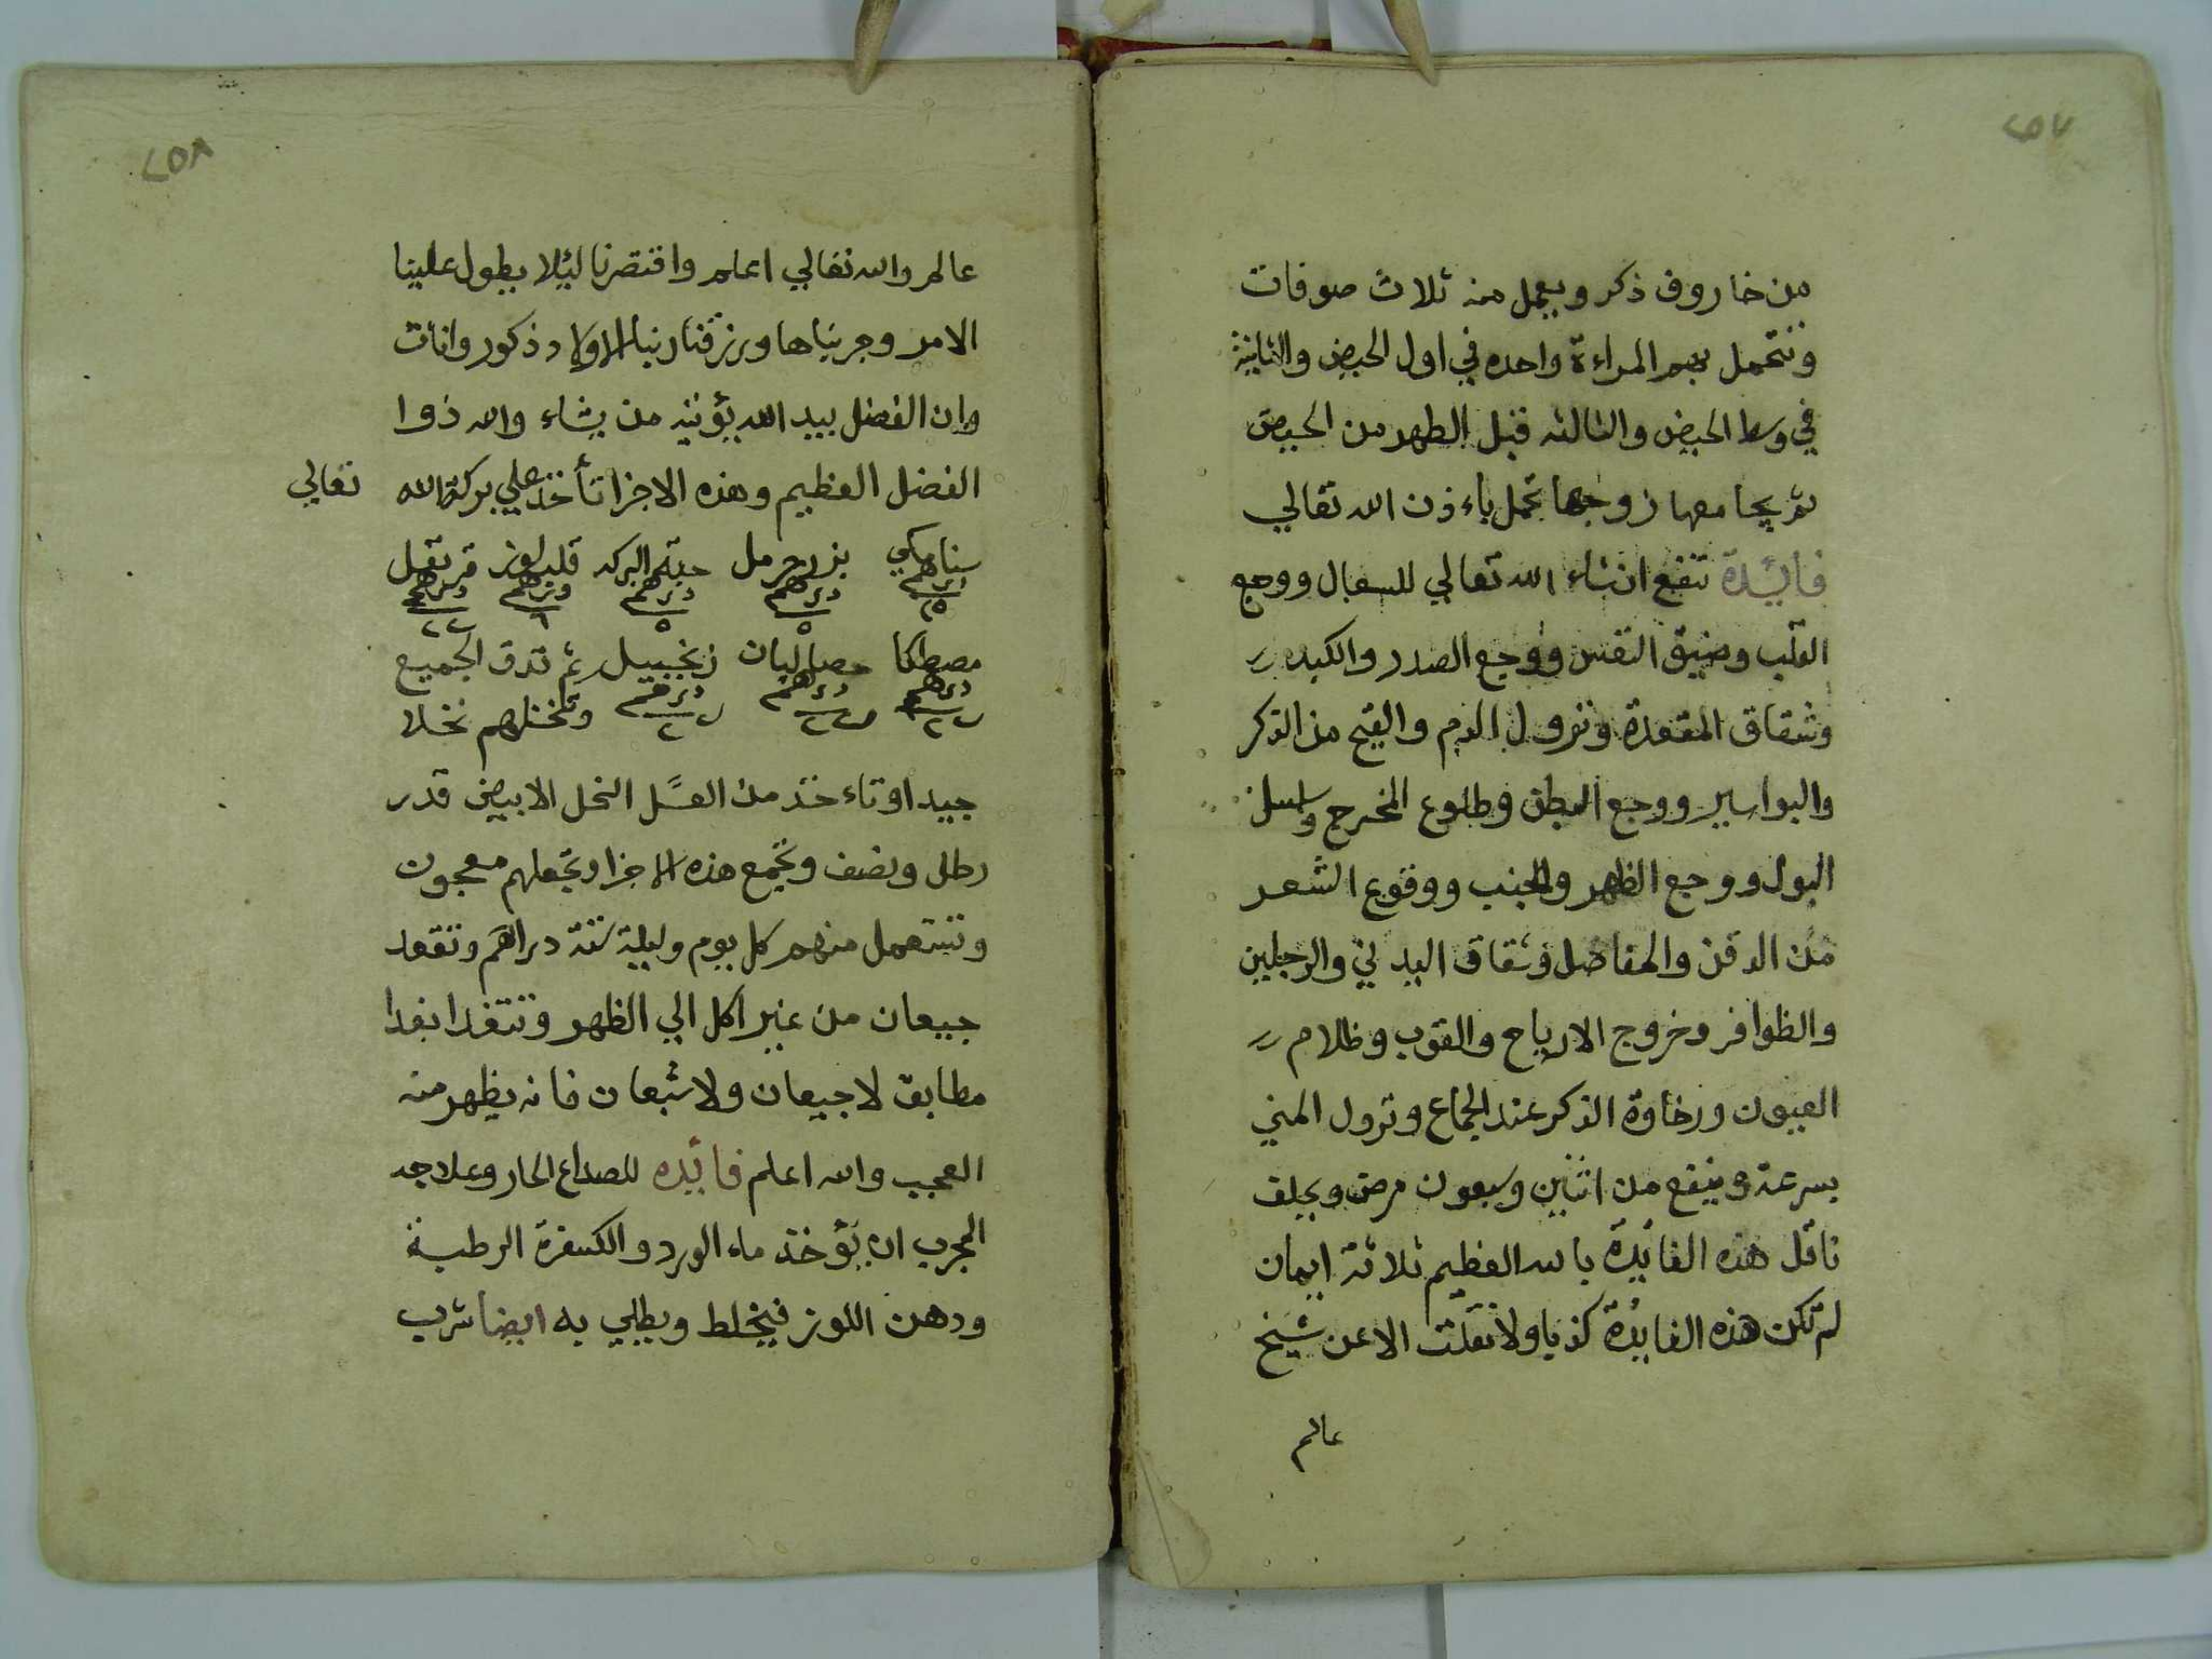 ٢٥٧
من خاروف ذكر ويعمل منه ثلاث صوفات
وتتحمل بهم المراءة واحده في اول الحيض والثانية
في وسط الحيض والثالثه قبل الطهر من الحيض
ثم يجامعها زوجها تحمل باءذن الله تعالي
فائدة تنفع انشاء الله تعالي للسعال ووجع
القلب وضيق النفس ووجع الصدر والكبد
وشقاق المقعدة ونزول الدم والقيح من الذكر
والبواسير ووجع البطن وطلوع المخرج وسلسل
البول ووجع الظهر والجنب ووقوع الشعر
من الدقن والمفاصل وشقاق اليدين والرجلين
والظوافر وخروج الارياح والقوب وظلام
العيون ورخاوة الذكر عند الجماع ونزول المني
بسرعة وينفع من اثنين وسبعون مرض ويحلف
ناقل هذه الفايدة بالله العظيم ثلاثة ايمان
لم تكن هذه الفايدة كذبا ولا نقلت الا عن شيخ
عالم
٢٥٨
عالم والله تعالي اعلم واقتصرنا ليئلا يطول علينا
الامر وجربناها ورزقنا ربنا الاولاد ذكور واناث
وان الفضل بيد الله يؤتيه من يشاء والله ذوا
الفضل العظيم وهذه الاجزا تأخذ علي بركة الله تعالي
سنامكي بزر حرمل حبة البركه قلب لوز قرنفل
درهم درهم درهم درهم درهم
٢٥ ٥ ٥ ٦ ٢٢
مصطكا حصالبان زنجبيل ثم تدق الجميع
درهم درهم درهم وتنخلهم نخلا
جيدا وتاءخذ من العسل النحل الابيض قدر
رطل ونصف وتجمع هذه الاجزا وتجعلهم معجون
وتستعمل منهم كل يوم وليلة ستة دراهم وتقعد
جيعان من غير اكل الي الظهر وتتغدا بغدا
مطابق لا جيعان ولا شبعان فانه يظهر منه
العجب والله اعلم فائده للصداع الحار وعلاجه
المجرب ان يؤخذ ماء الورد والكسفرة الرطبة
ودهن اللوز فيخلط ويطلي به ايضا شرب